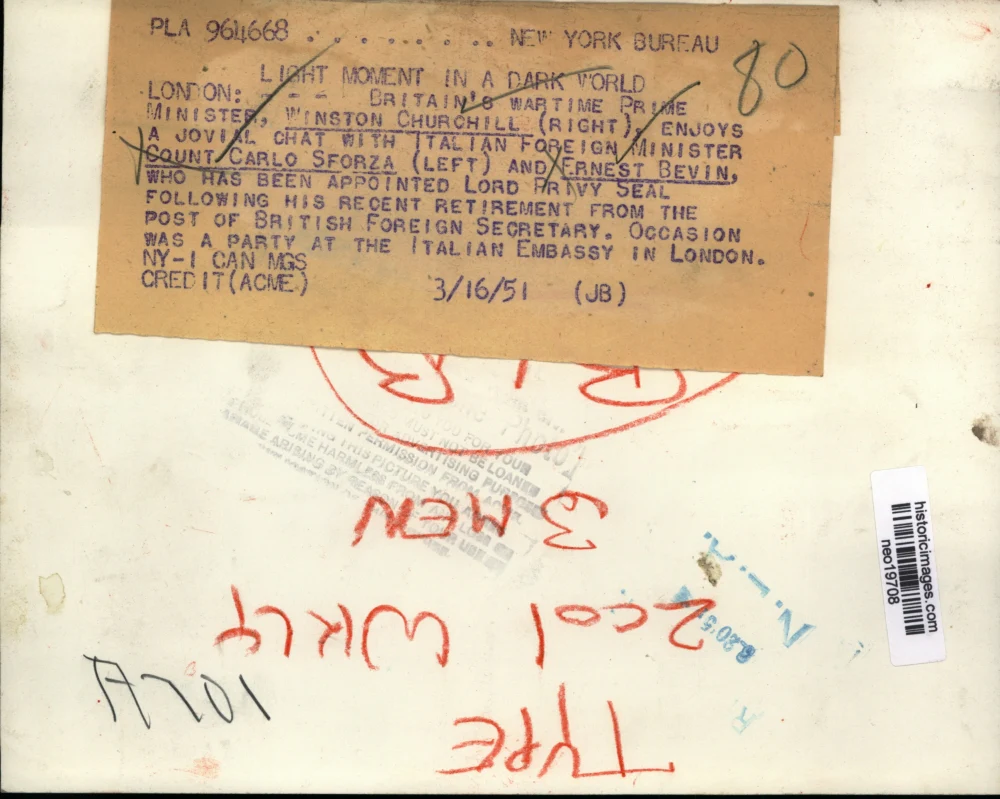 PLA 964668 . . . . . . . . . NEW YORK BUREAU
80
LIGHT MOMENT IN A DARK WORLD
LONDON: - - - BRITAIN'S WARTIME PRIME
MINISTER, WINSTON CHURCHILL (RIGHT), ENJOYS
A JOVIAL CHAT WITH ITALIAN FOREIGN MINISTER
COUNT CARLO SFORZA (LEFT) AND ERNEST BEVIN,
WHO HAS BEEN APPOINTED LORD PRIVY SEAL
FOLLOWING HIS RECENT RETIREMENT FROM THE
POST OF BRITISH FOREIGN SECRETARY. OCCASION
WAS A PARTY AT THE ITALIAN EMBASSY IN LONDON.
NY-1 CAN MGS
CREDIT(ACME) 3/16/51 (JB)
PERMISSION FROM ACME
THIS PICTURE YOU
HARMLESS FROM ANY LOSS OR
ARISING BY REASON OF YOUR USE
3 MEN
2 col WKLY
TYPE
N. - A.
historicimages.com
neo19708